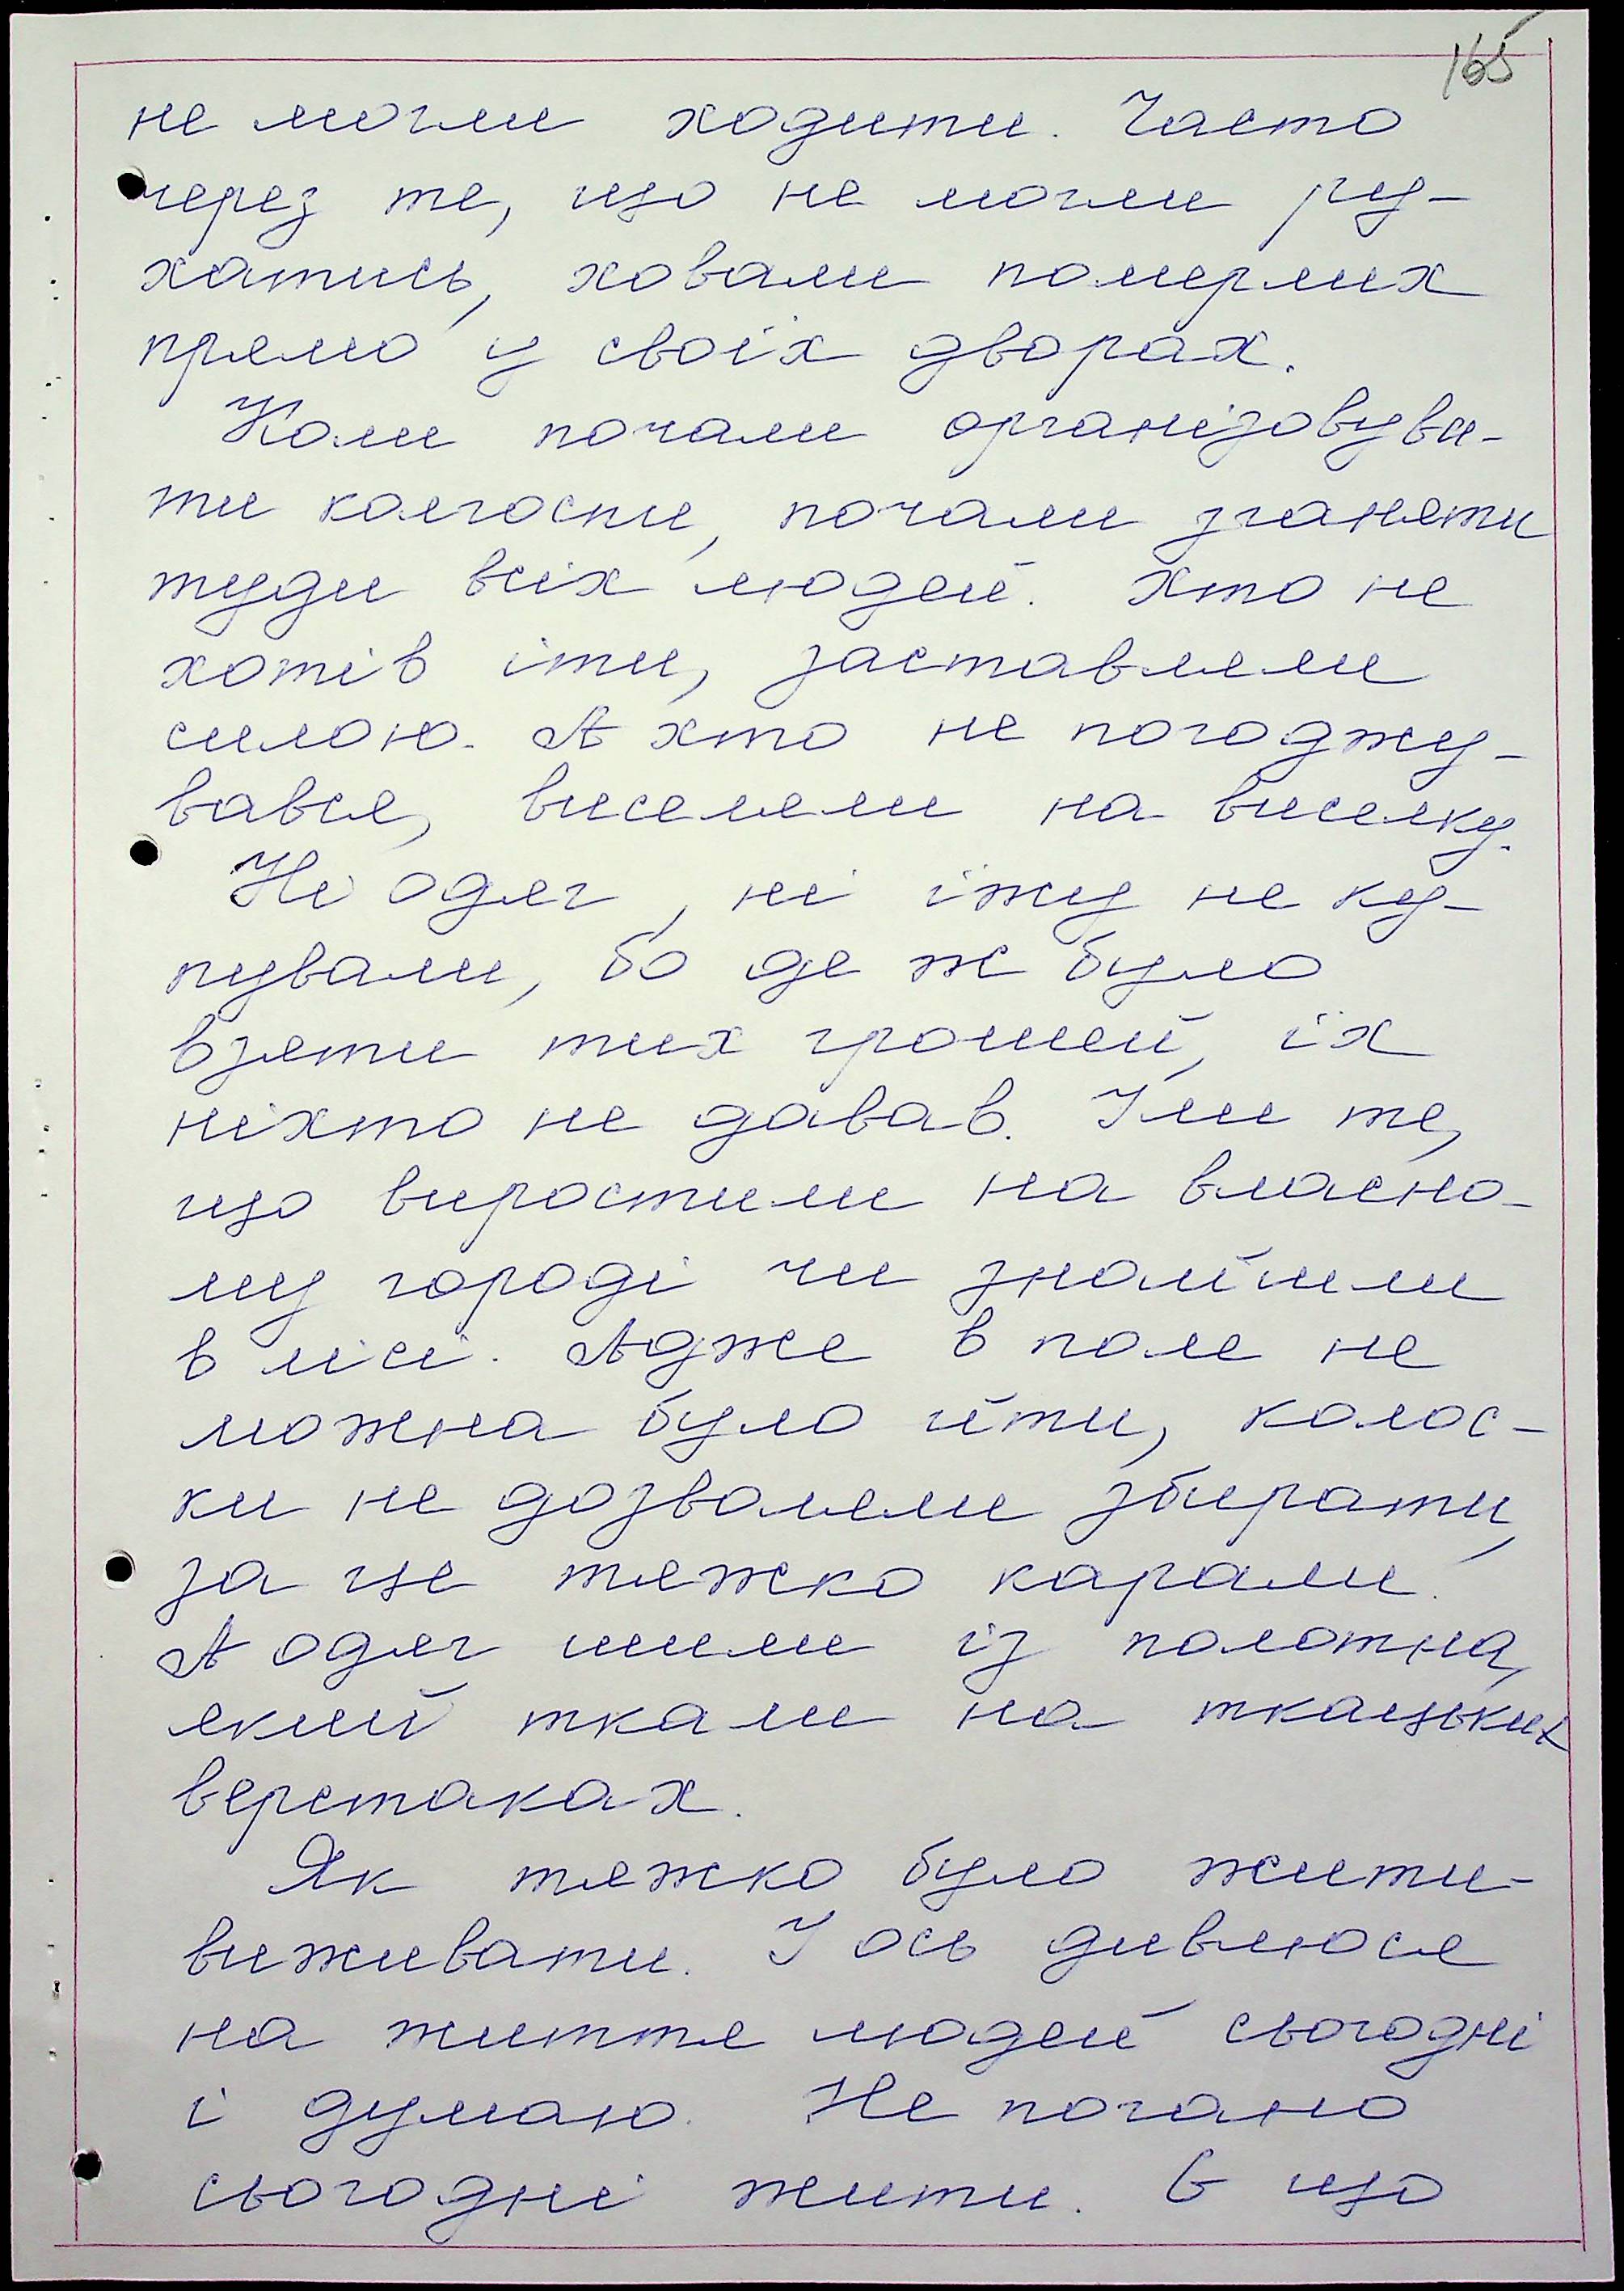 165
не могли ходити. Часто
через те, що не могли ру-
хатись, ховали померлих
прямо у своїх дворах.
Коли почали організовува-
ти колгоспи, почали зганяти
туди всіх людей. Хто не
хотів іти, заставляли
силою. А хто не погоджу-
вався, виселяли на висилку.
Ні одяг, ні їжу не ку-
пували, бо де ж було
взяти тих грошей, їх
ніхто не давав. Їли те,
що виростили на власно-
му городі чи знайшли
в лісі. Адже в поле не
можна було йти, колос-
ки не дозволяли збирати,
за це тяжко карали.
А одяг шили із полотна,
який ткали на ткацьких
верстаках.
Як тяжко було жити-
виживати. І ось дивлюся
на життя людей сьогодні
і думаю. Не погано
сьогодні жити. Є що